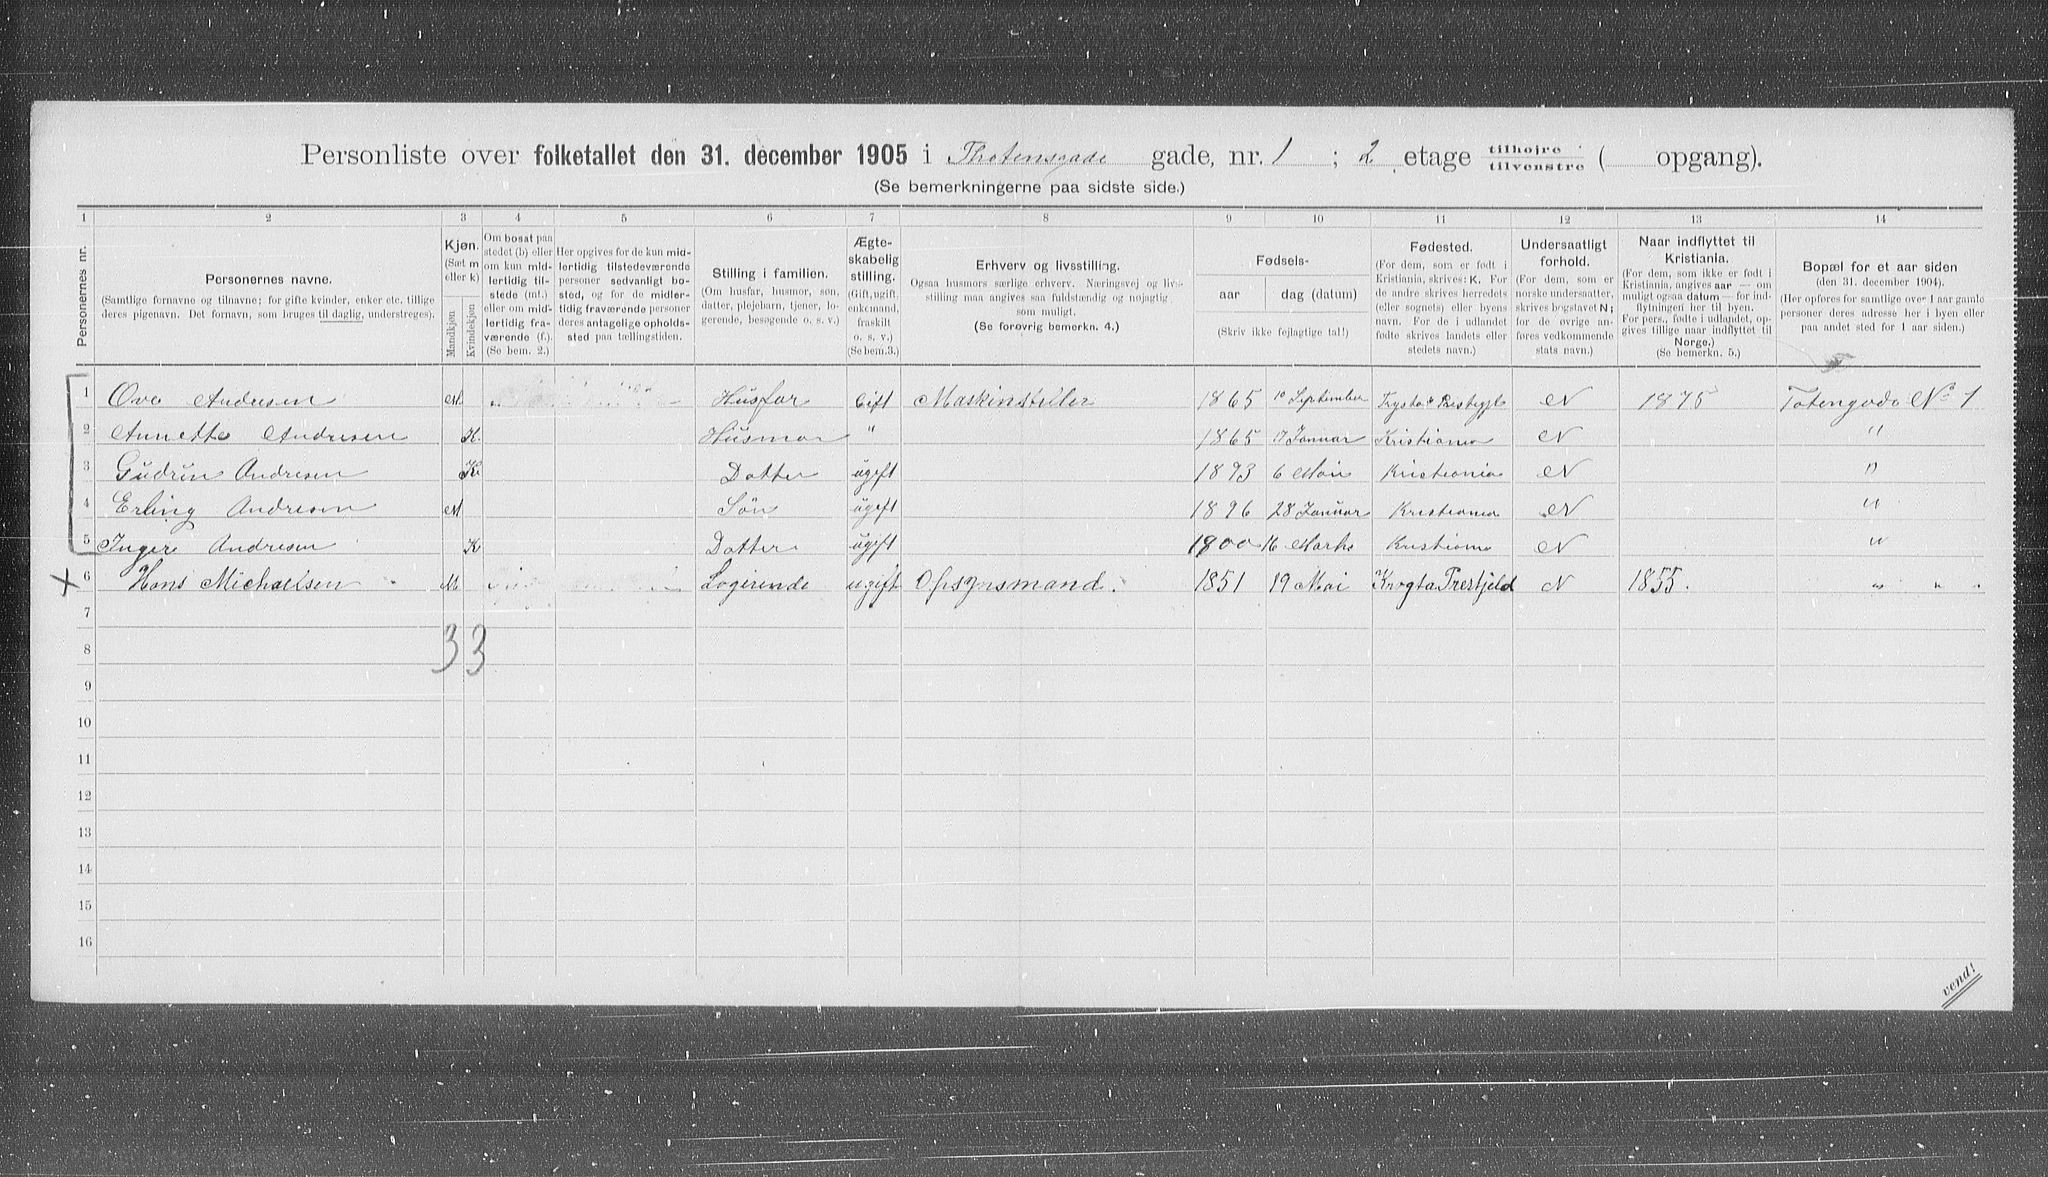 Personliste over folketallet den 31. december 1905 i Thotensgade gade, nr. 1 ; 2 etage tilhøjre / tilvenstre ( opgang).
(Se bemerkningerne paa sidste side.)
1 2 3 4 5 6 7 8 9 10 11 12 13 14
Personernes nr.
Personernes navne.
(Samtlige fornavne og tilnavne; for gifte kvinder, enker etc. tillige
deres pigenavn. Det fornavn, som bruges til daglig, understreges).
Kjøn.
(Sæt m
eller k)
Mandkjøn
Kvindekjøn
Om bosat paa
stedet (b) eller
om kun mid-
lertidig til-
stede (mt.)
eller om mid-
lertidig fra-
værende (f.).
(Se bem. 2.)
Her opgives for de kun mid-
lertidig tilstedeværende
personer sedvanligt bo-
sted, og for de midler-
tidig fraværende personer
deres antagelige opholds-
sted paa tællingstiden.
Stilling i familien.
(Om husfar, husmor, søn,
datter, plejebarn, tjener, lo-
gerende, besøgende o. s. v.)
Ægte-
skabelig
stilling.
(Gift, ugift,
enkemand,
fraskilt
o. s. v.)
(Se bem. 3.)
Erhverv og livsstilling.
Ogsaa husmors særlige erhverv. Næringsvej og livs-
stilling maa angives saa fuldstændig og nøjagtig
som muligt.
(Se forøvrig bemerkn. 4.)
Fødsels-
aar
dag (datum)
(Skriv ikke fejlagtige tal!)
Fødested.
(For dem, som er født i
Kristiania, skrives: K. For
de andre skrives herredets
(eller sognets) eller byens
navn. For de i udlandet
fødte skrives landets eller
stedets navn.)
Undersaatligt
forhold.
(For dem, som er
norske undersaatter,
skrives bogstavet N;
for de øvrige an-
føres vedkommende
stats navn.)
Naar indflyttet til
Kristiania.
(For dem, som ikke er født i
Kristiania, angives aar — om
muligt ogsaa datum — for ind-
flytningen her til byen.
For pers. fødte i udlandet, op-
gives tillige naar indflyttet til
Norge.)
(Se bemerkn. 5.)
Bopæl for et aar siden
(den 31. december 1904).
(Her opføres for samtlige over 1 aar gamle
personer deres adresse her i byen eller
paa andet sted for 1 aar siden.)
1 Ove Andresen M. Husfar Gift Maskinstiller 1865 10 September 1875 Totengade No 1 N
2 Annette Andresen K. Husmor " 1865 17 Januar Kristiania N "
3 Gudrun Andresen K. Datter ugift 1893 6 Mai Kristiania N "
4 Erling Andresen M Søn ugift 1896 28 Januar Kristiania N "
5 Inger Andresen K Datter ugift 1900 16 Marts Kristiania N "
x 6 Hans Michaelsen M Logerende ugift Opsynsmand. 1851 19 Mai N 1855. " " "
7
8 3 3
9
10
11
12
13
14
15
16
vend!